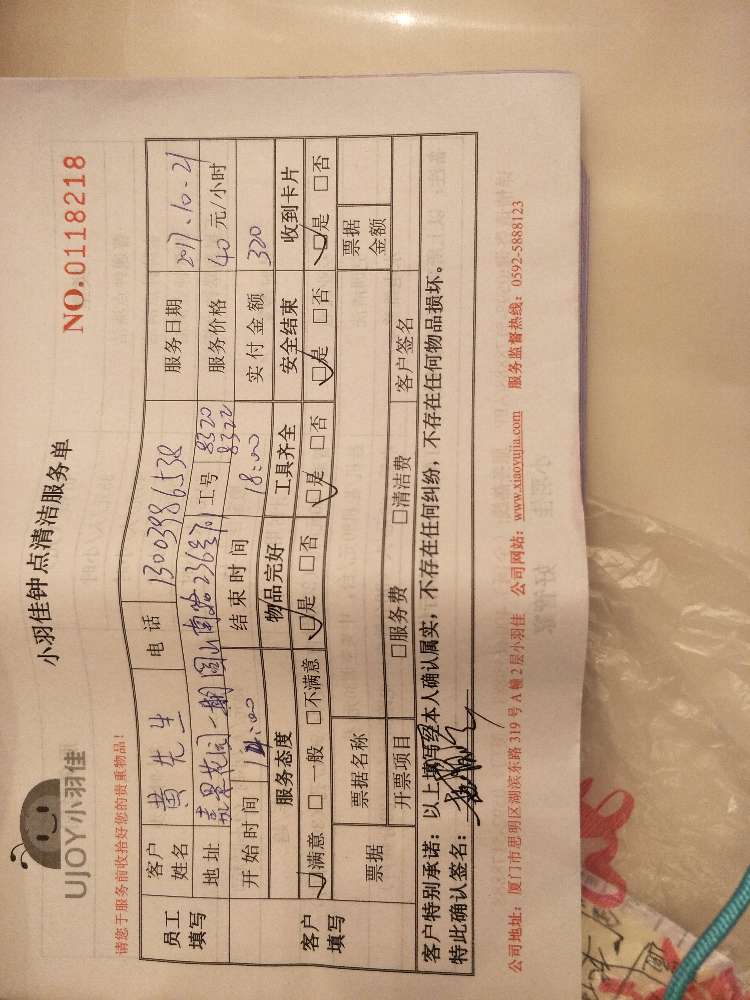 UJOY小羽佳
小羽佳钟点清洁服务单
NO.0118218
请您于服务前收拾好您的贵重物品！
员工填写
客户姓名 黄先生 电话 13003986538 服务日期 2017.10.21
地址 一期 236号701 工号 8320 8322 服务价格 40元/小时
开始时间 14:00 结束时间 18:00 实付金额 320
客户填写
服务态度 物品完好 工具齐全 安全结束 收到卡片
☑满意 □一般 □不满意 ☑是 □否 ☑是 □否 ☑是 □否 ☑是 □否
票据 票据名称 票据金额
开票项目 □服务费 □清洁费 客户签名
客户特别承诺：以上填写经本人确认属实，不存在任何纠纷，不存在任何物品损坏。
特此确认签名：
公司地址：厦门市思明区湖滨东路319号A幢2层小羽佳 公司网站：www.xiaoyujia.com 服务监督热线：0592-5888123